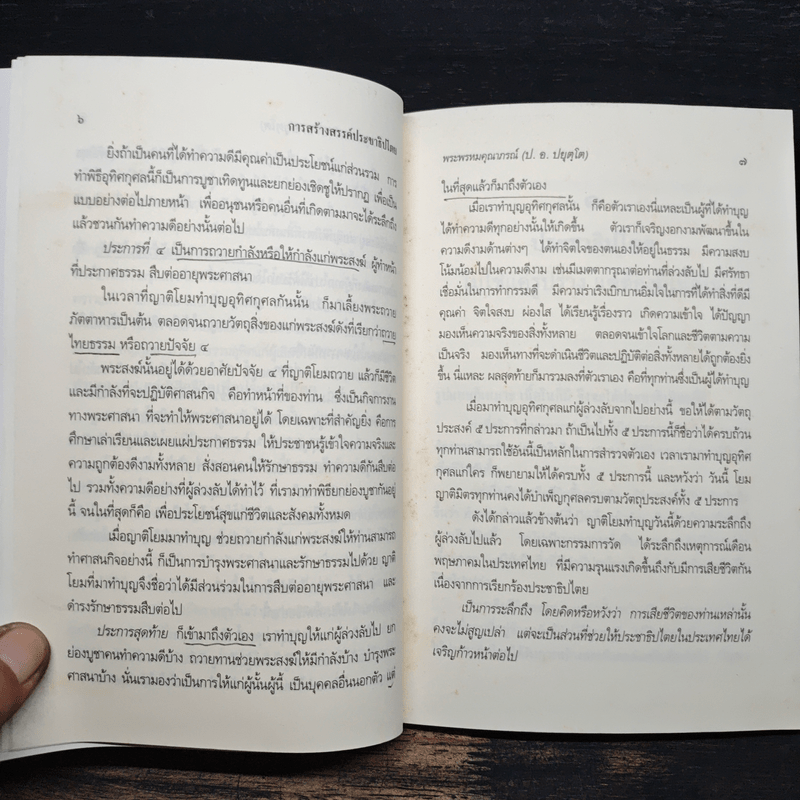 ๖
การสร้างสรรค์ประชาธิปไตย
ยิ่งถ้าเป็นคนที่ได้ทำความดีมีคุณค่าเป็นประโยชน์แก่ส่วนรวม การ
ทำพิธีอุทิศกุศลนี้ก็เป็นการบูชาเทิดทูนและยกย่องเชิดชูให้ปรากฏ เพื่อเป็น
แบบอย่างต่อไปภายหน้า เพื่ออนุชนหรือคนอื่นที่เกิดตามมาจะได้ระลึกถึง
แล้วชวนกันทำความดีอย่างนั้นต่อไป
ประการที่ ๔ เป็นการถวายกำลังหรือให้กำลังแก่พระสงฆ์ ผู้ทำหน้า
ที่ประกาศธรรม สืบต่ออายุพระศาสนา
ในเวลาที่ญาติโยมทำบุญอุทิศกุศลกันนั้น ก็มาเลี้ยงพระถวาย
ภัตตาหารเป็นต้น ตลอดจนถวายวัตถุสิ่งของแก่พระสงฆ์ดังที่เรียกว่าถวาย
ไทยธรรม หรือถวายปัจจัย ๔
พระสงฆ์นั้นอยู่ได้ด้วยอาศัยปัจจัย ๔ ที่ญาติโยมถวาย แล้วก็มีชีวิต
และมีกำลังที่จะปฏิบัติศาสนกิจ คือทำหน้าที่ของท่าน ซึ่งเป็นกิจการงาน
ทางพระศาสนา ที่จะทำให้พระศาสนาอยู่ได้ โดยเฉพาะที่สำคัญยิ่ง คือการ
ศึกษาเล่าเรียนและเผยแผ่ประกาศธรรม ให้ประชาชนรู้เข้าใจความจริงและ
ความถูกต้องดีงามทั้งหลาย สั่งสอนคนให้รักษาธรรม ทำความดีกันสืบต่อ
ไป รวมทั้งความดีอย่างที่ผู้ล่วงลับได้ทำไว้ ที่เรามาทำพิธียกย่องบูชากันอยู่
นี้ จนในที่สุดก็คือ เพื่อประโยชน์สุขแก่ชีวิตและสังคมทั้งหมด
เมื่อญาติโยมมาทำบุญ ช่วยถวายกำลังแก่พระสงฆ์ให้ท่านสามารถ
ทำศาสนกิจอย่างนี้ ก็เป็นการบำรุงพระศาสนาและรักษาธรรมไปด้วย ญาติ
โยมที่มาทำบุญจึงชื่อว่าได้มีส่วนร่วมในการสืบต่ออายุพระศาสนา และ
ดำรงรักษาธรรมสืบต่อไป
ประการสุดท้าย ก็เข้ามาถึงตัวเอง เราทำบุญให้แก่ผู้ล่วงลับไป ยก
ย่องบูชาคนทำความดีบ้าง ถวายทานช่วยพระสงฆ์ให้มีกำลังบ้าง บำรุงพระ
ศาสนาบ้าง นั่นเรามองว่าเป็นการให้แก่ผู้นั้นผู้นี้ เป็นบุคคลอื่นนอกตัว แต่
พระพรหมคุณาภรณ์ (ป. อ. ปยุตฺโต)
๗
ในที่สุดแล้วก็มาถึงตัวเอง
เมื่อเราทำบุญอุทิศกุศลนั้น ก็คือตัวเราเองนี่แหละเป็นผู้ที่ได้ทำบุญ
ได้ทำความดีทุกอย่างนั้นให้เกิดขึ้น ตัวเราก็เจริญงอกงามพัฒนาขึ้นใน
ความดีงามด้านต่างๆ ได้ทำจิตใจของตนเองให้อยู่ในธรรม มีความสงบ
โน้มน้อมไปในความดีงาม เช่นมีเมตตากรุณาต่อท่านที่ล่วงลับไป มีศรัทธา
เชื่อมั่นในการทำกรรมดี มีความร่าเริงเบิกบานอิ่มใจในการที่ได้ทำสิ่งที่ดีมี
คุณค่า จิตใจสงบ ผ่องใส ได้เรียนรู้เรื่องราว เกิดความเข้าใจ ได้ปัญญา
มองเห็นความจริงของสิ่งทั้งหลาย ตลอดจนเข้าใจโลกและชีวิตตามความ
เป็นจริง มองเห็นทางที่จะดำเนินชีวิตและปฏิบัติต่อสิ่งทั้งหลายได้ถูกต้องยิ่ง
ขึ้น นี่แหละ ผลสุดท้ายก็มารวมลงที่ตัวเราเอง คือที่ทุกท่านซึ่งเป็นผู้ได้ทำบุญ
เมื่อมาทำบุญอุทิศกุศลแก่ผู้ล่วงลับจากไปอย่างนี้ ขอให้ได้ตามวัตถุ
ประสงค์ ๕ ประการที่กล่าวมา ถ้าเป็นไปทั้ง ๕ ประการนี้ก็ชื่อว่าได้ครบถ้วน
ทุกท่านสามารถใช้อันนี้เป็นหลักในการสำรวจตัวเอง เวลาเรามาทำบุญอุทิศ
กุศลแก่ใคร ก็พยายามให้ได้ครบทั้ง ๕ ประการนี้ และหวังว่า วันนี้ โยม
ญาติมิตรทุกท่านคงได้บำเพ็ญกุศลครบตามวัตถุประสงค์ทั้ง ๕ ประการ
ดังได้กล่าวแล้วข้างต้นว่า ญาติโยมทำบุญวันนี้ด้วยความระลึกถึง
ผู้ล่วงลับไปแล้ว โดยเฉพาะกรรมการวัด ได้ระลึกถึงเหตุการณ์เดือน
พฤษภาคมในประเทศไทย ที่มีความรุนแรงเกิดขึ้นถึงกับมีการเสียชีวิตกัน
เนื่องจากการเรียกร้องประชาธิปไตย
เป็นการระลึกถึง โดยคิดหรือหวังว่า การเสียชีวิตของท่านเหล่านั้น
คงจะไม่สูญเปล่า แต่จะเป็นส่วนที่ช่วยให้ประชาธิปไตยในประเทศไทยได้
เจริญก้าวหน้าต่อไป